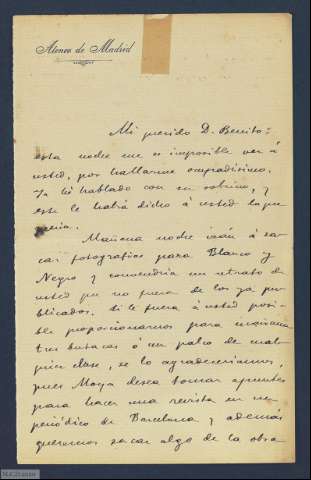 Ateneo de Madrid
Mi querido D. Benito:
esta noche me es imposible ver á
usted, por hallarme ocupadísimo.
Ya he hablado con su sobrino, y
este le habrá dicho á usted lo que
Mañana noche irán á sa-
car fotografías para Blanco y
Negro y convendría un retrato de
usted que no fuera de los ya pu-
blicados. Si le fuera á usted posi-
ble proporcionarnos para mañana
tres butacas ó un palco de cual-
quier clase, se lo agradeceríamos,
pues Moya desea tomar apuntes
para hacer una revista en un
periódico de Barcelona y además
queremos sacar algo de la obra